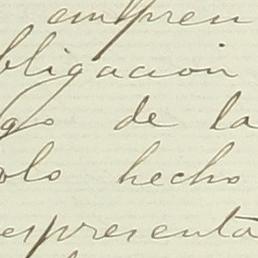 empren
bligacion
go de la
olo hecho
espresenta